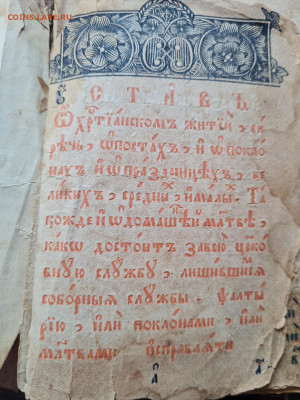 COINS.LAVE.RU
Ꙋ С Т А В Ъ
Ѡ хрⷭ҇тїанскомъ житїи, си
рѣчь, ѡ постахъ, и ѡ покло
нахъ и ѡ праздницѣхъ, ве
ликихъ, среднихъ, и малыхъ. Та
кожде и ѡ домашнѣи мл҃твѣ,
како достоитъ за всю црко
вную слꙋжбꙋ, лишившимсѧ
соборныѧ слꙋжбы. ѱалты
рїю, или поклонами, или
мл҃твами исправлѧти